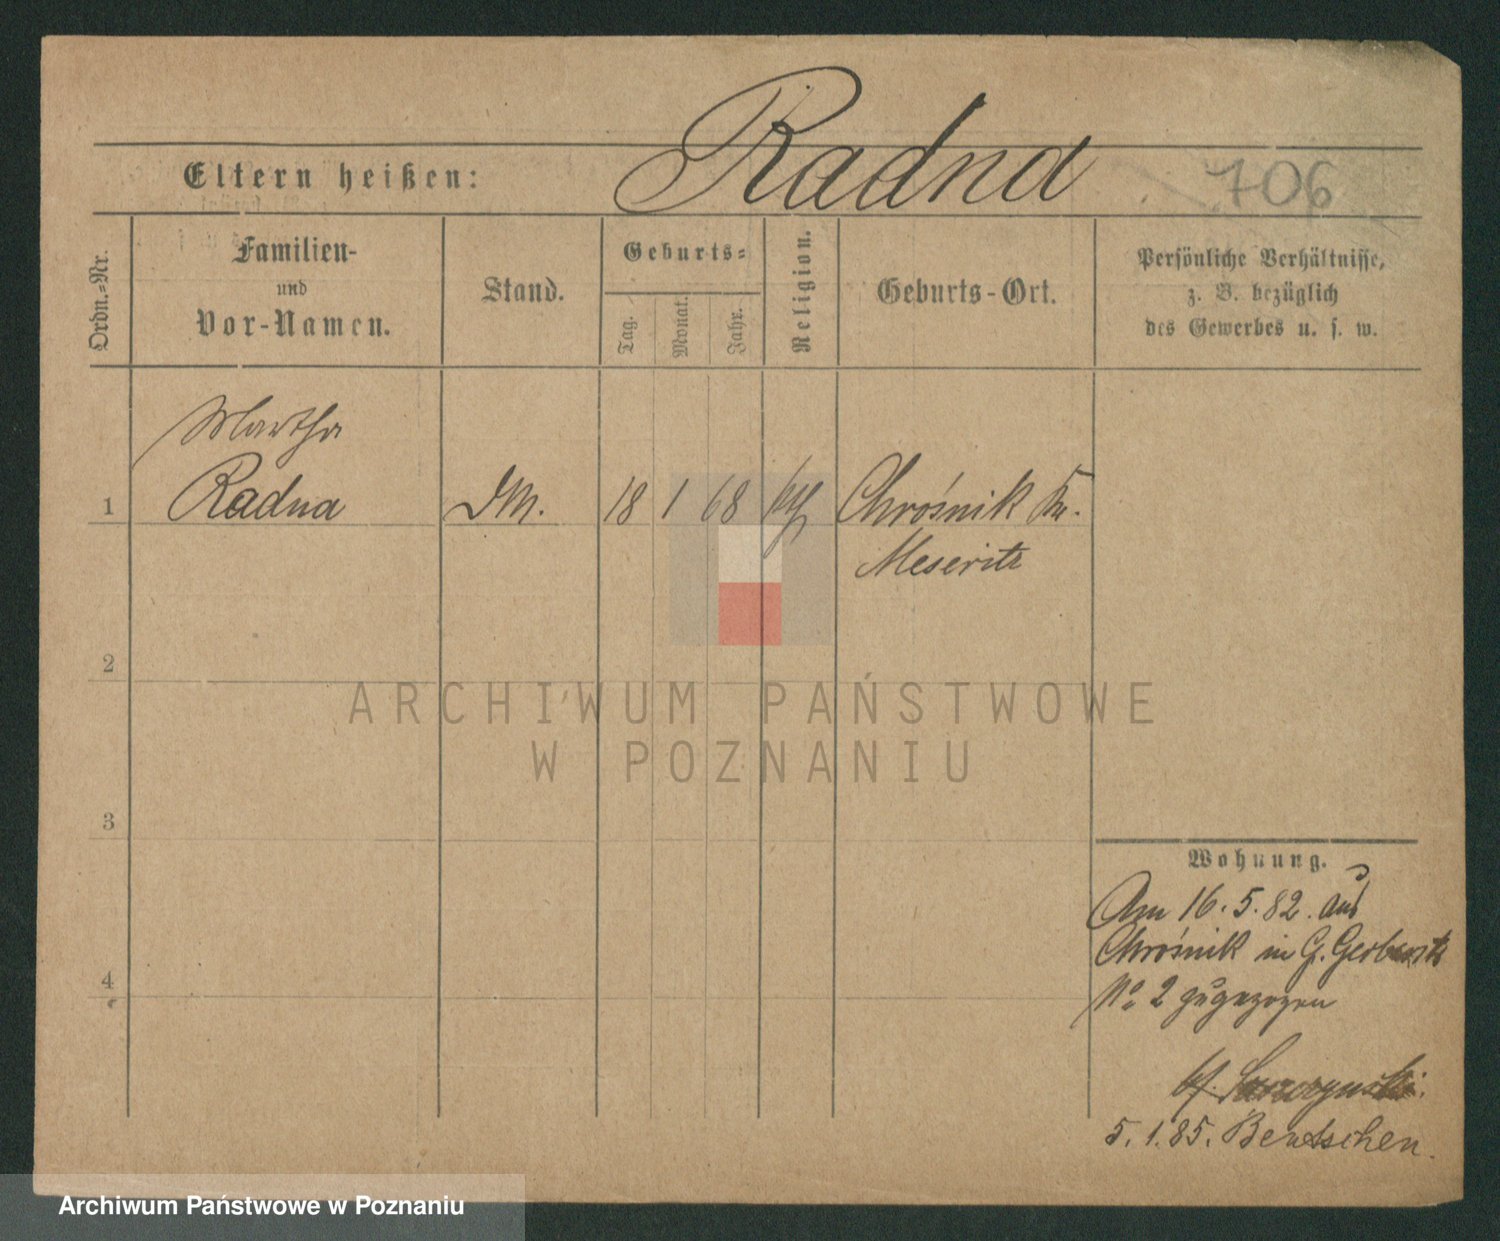 Radna
Eltern heißen:
706
Ordn.-Nr.
Familien-
und
Vor-Namen.
Stand.
Geburts-
Tag.
Monat.
Jahr.
Religion.
Geburts-Ort.
Persönliche Verhältnisse,
z. B. bezüglich
des Gewerbes u. s. w.
Martha
1 Radna DM. 18 1 68 kth Chrośnik Kr.
Meseritz
2
3
4
Wohnung.
Am 16. 5. 82. aus
Chrośnik in G. Gerberstr
No 2 zugezogen
5. 1. 85. Bentschen.
ARCHIWUM PAŃSTWOWE
W POZNANIU
Archiwum Państwowe w Poznaniu